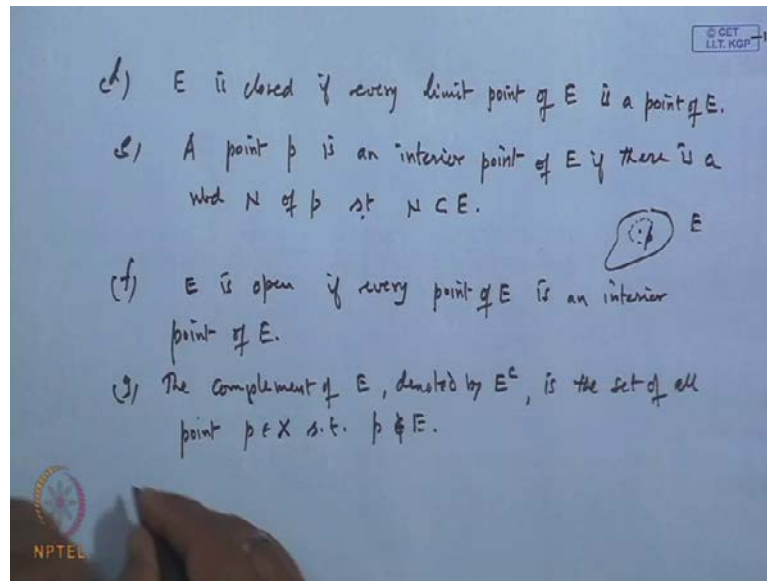 © CET
I.I.T. KGP
(d) E is closed if every limit point of E is a point of E.
(e) A point p is an interior point of E if there is a
nbd N of p st N ⊂ E.
p E
(f) E is open if every point of E is an interior
point of E.
(g) The complement of E, denoted by E^c, is the set of all
point p ∈ X s.t. p ∉ E.
NPTEL